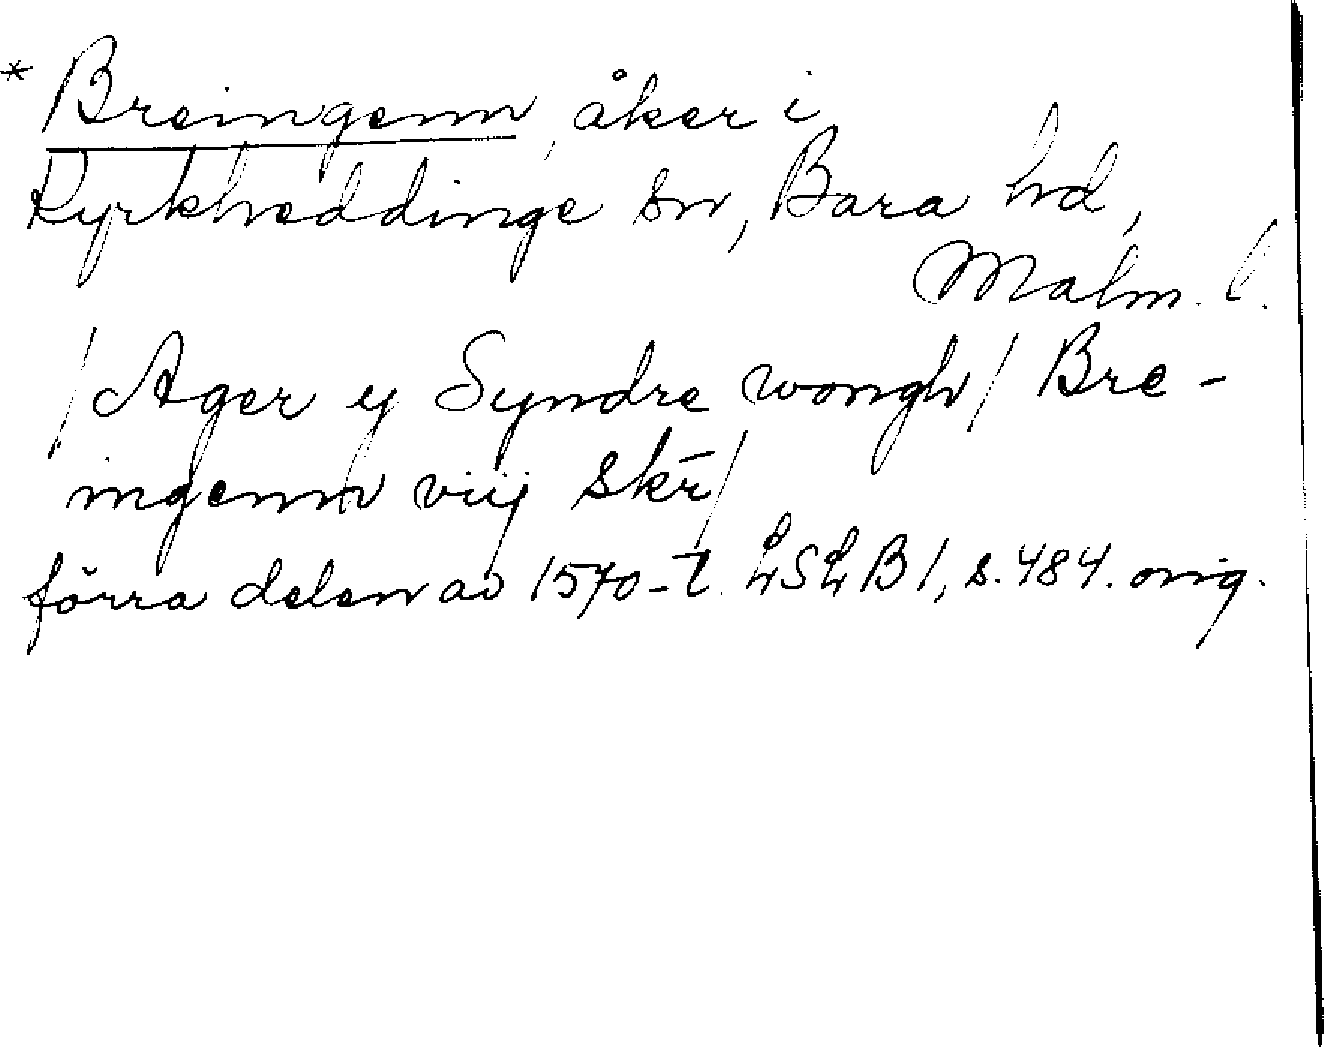 * Breingenn, åker i
Kyrkheddinge sn, Bara hd,
Malm. l.
/Ager y Syndre wongh/ Bre-
ingenn viij skr̄/
förra delen av 1570-t. LSLB1, s. 484. orig.